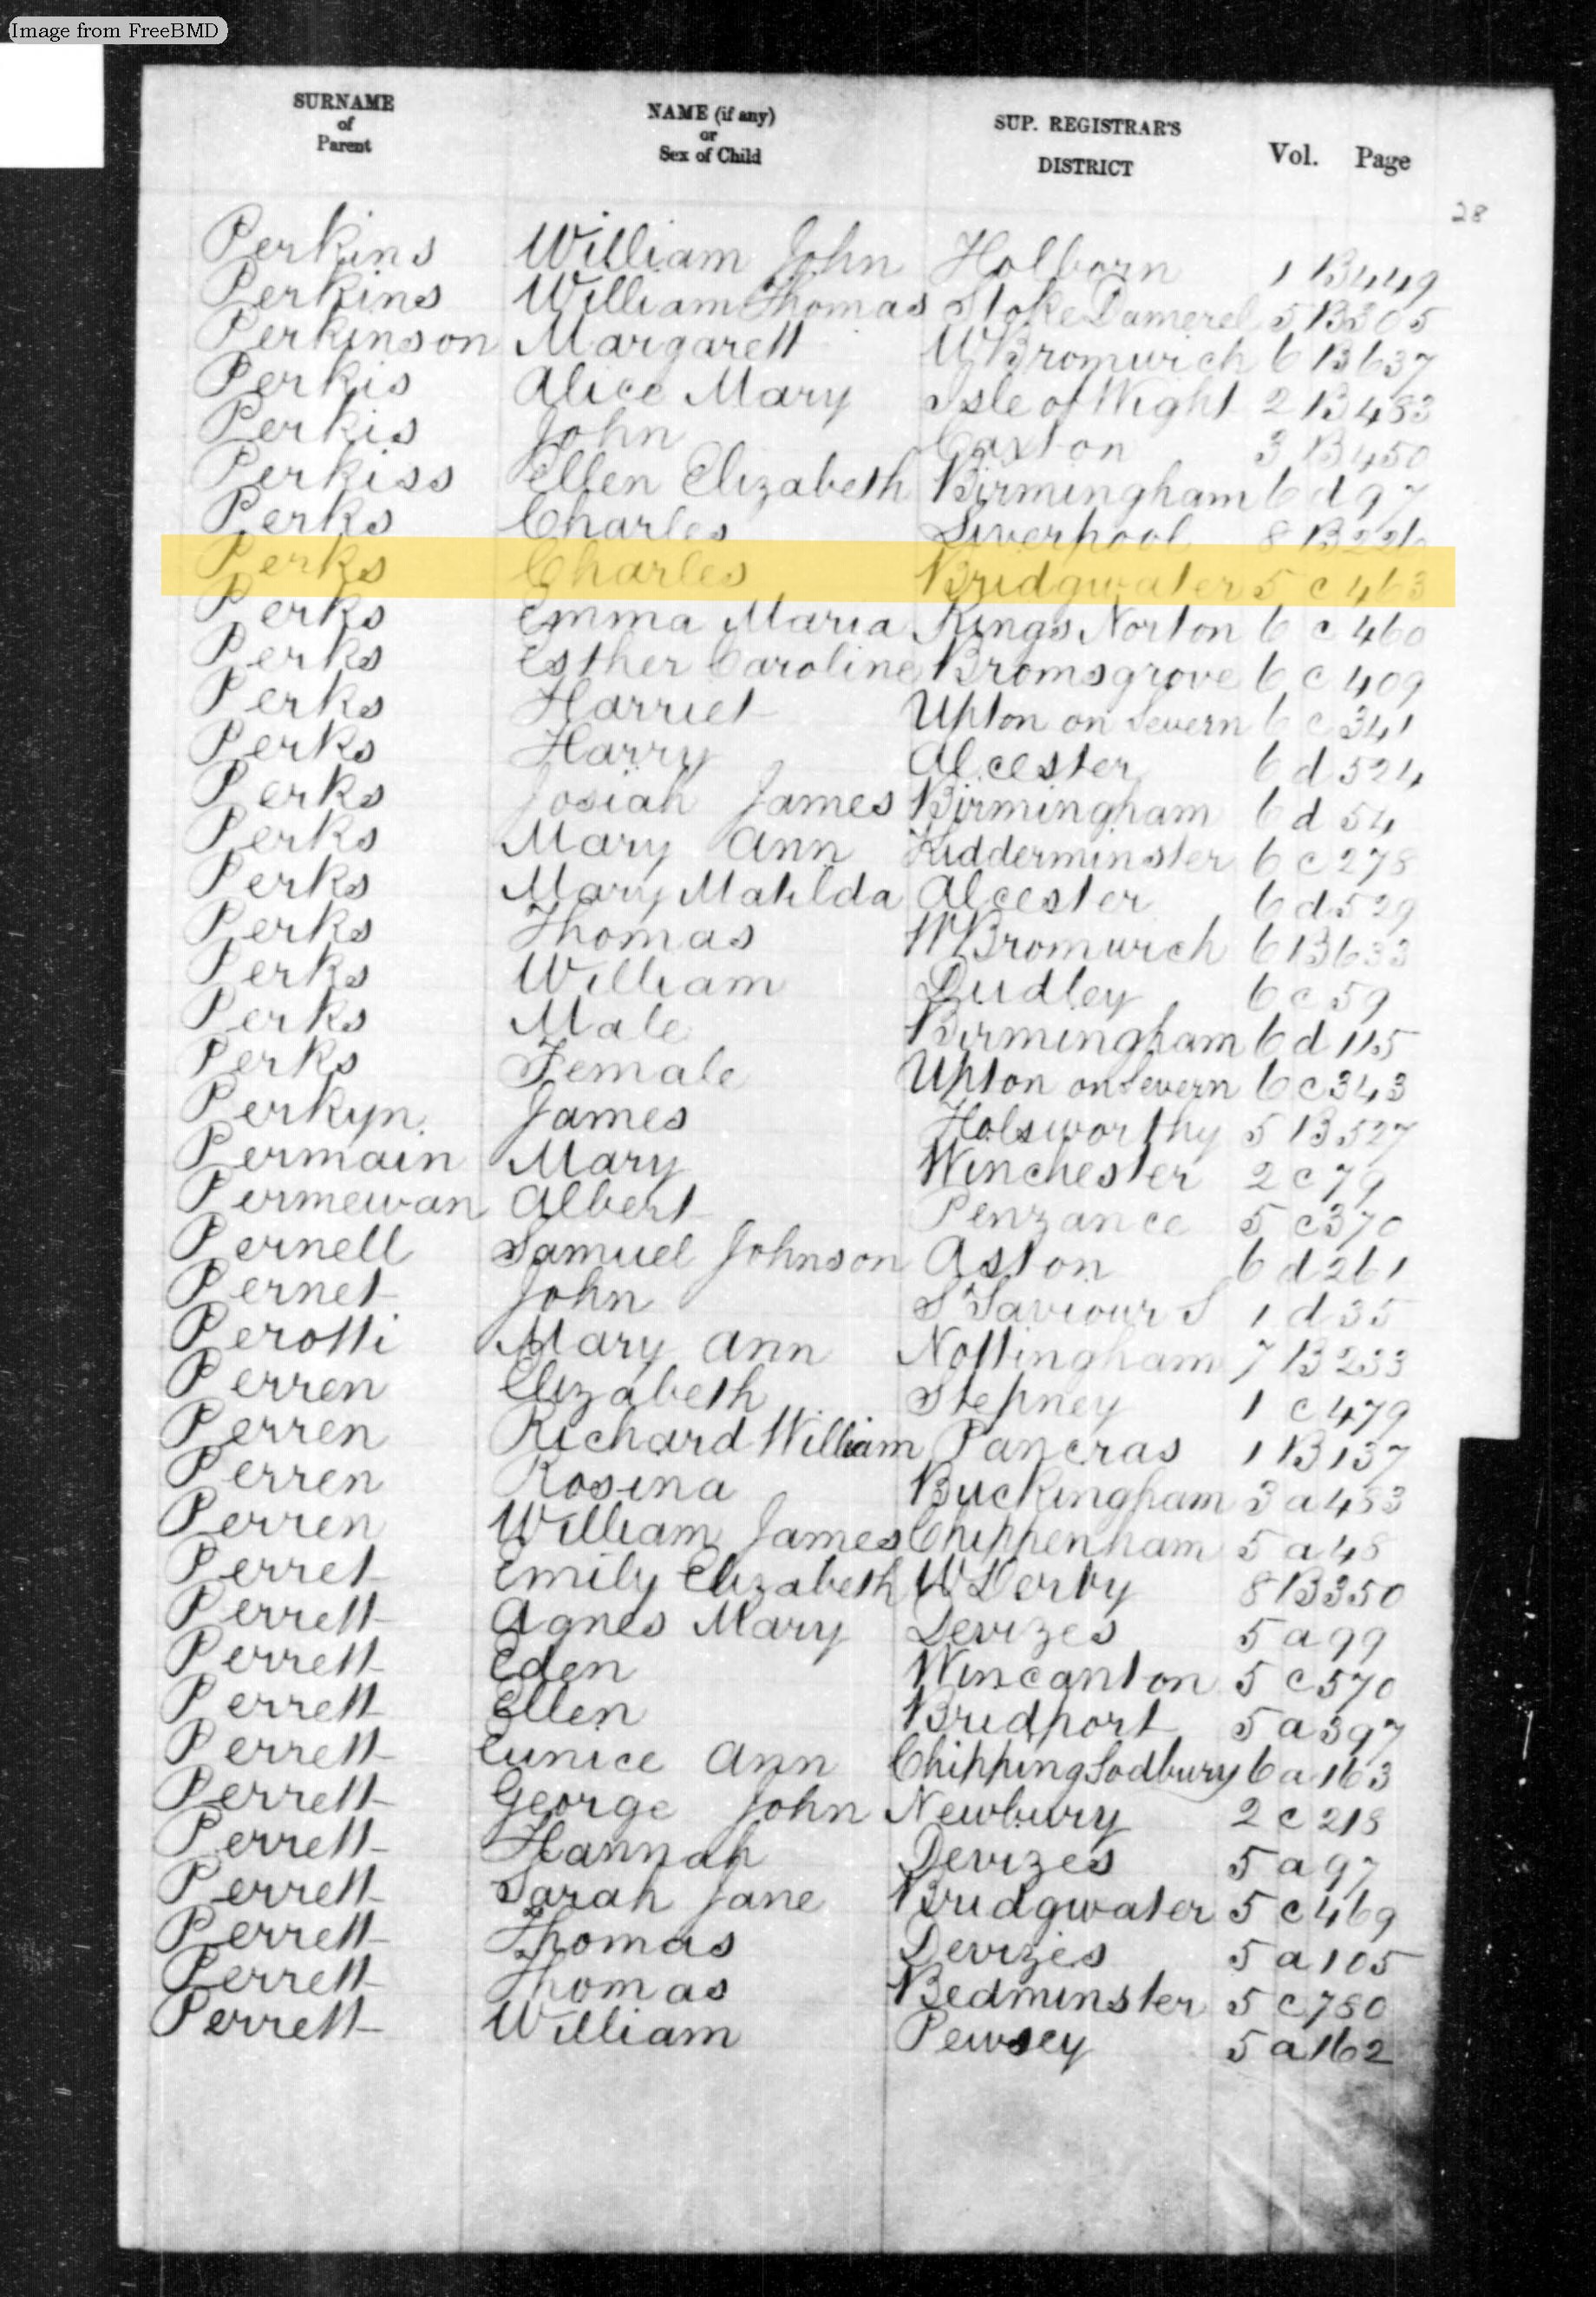 Image from FreeBMD
SURNAME of Parent NAME (if any) or Sex of Child SUP. REGISTRAR'S DISTRICT Vol. Page
28
Perkins William John Holborn 1 B 449
Perkins William Thomas Stoke Damerel 5 B 305
Perkinson Margarett W Bromwich 6 B 637
Perkis Alice Mary Isle of Wight 2 B 483
Perkis John Caxton 3 B 450
Perkiss Ellen Elizabeth Birmingham 6 d 97
Perks Charles Liverpool 8 B
Perks Charles Bridgwater 5 c 463
Perks Emma Maria Kings Norton 6 c 460
Perks Esther Caroline Bromsgrove 6 c 409
Perks Harriet Upton on Severn 6 c 341
Perks Harry Alcester 6 d 524
Perks Josiah James Birmingham 6 d 54
Perks Mary Ann Kidderminster 6 c 278
Perks Mary Matilda Alcester 6 d 529
Perks Thomas W Bromwich 6 B 633
Perks William Dudley 6 c 59
Perks Male Birmingham 6 d 115
Perks Female Upton on Severn 6 c 343
Perkyn James Holsworthy 5 B 527
Permain Mary Winchester 2 c 79
Permewan Albert Penzance 5 c 370
Pernell Samuel Johnson Aston 6 d 261
Pernet John St Saviour S 1 d 35
Perotti Mary Ann Nottingham 7 B 233
Perren Elizabeth Stepney 1 c 479
Perren Richard William Pancras 1 B 137
Perren Rosina Buckingham 3 a 483
Perren William James Chippenham 5 a 48
Perret Emily Elizabeth W Derby 8 B 350
Perrett Agnes Mary Devizes 5 a 99
Perrett Eden Wincanton 5 c 570
Perrett Ellen Bridport 5 a 397
Perrett Eunice Ann Chipping Sodbury 6 a 163
Perrett George John Newbury 2 c 218
Perrett Hannah Devizes 5 a 97
Perrett Sarah Jane Bridgwater 5 c 469
Perrett Thomas Devizes 5 a 105
Perrett Thomas Bedminster 5 c 780
Perrett William Pewsey 5 a 162